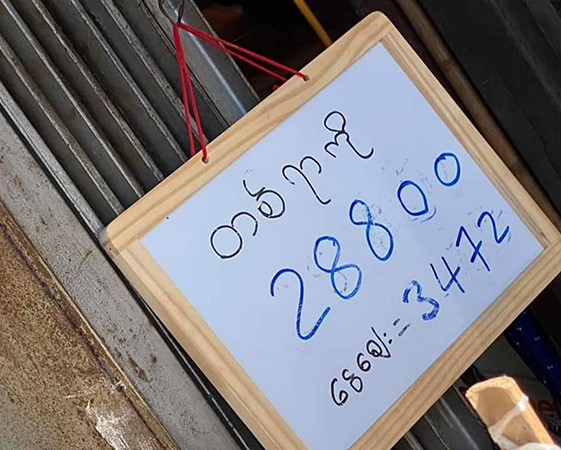 တစ်ရာကို
28800
ငွေဈေး = 3472